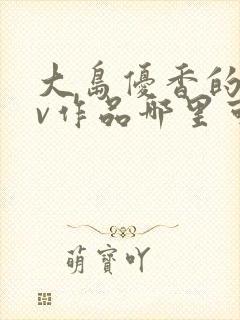 大島優香的
v作品哪里可
萌寶吖